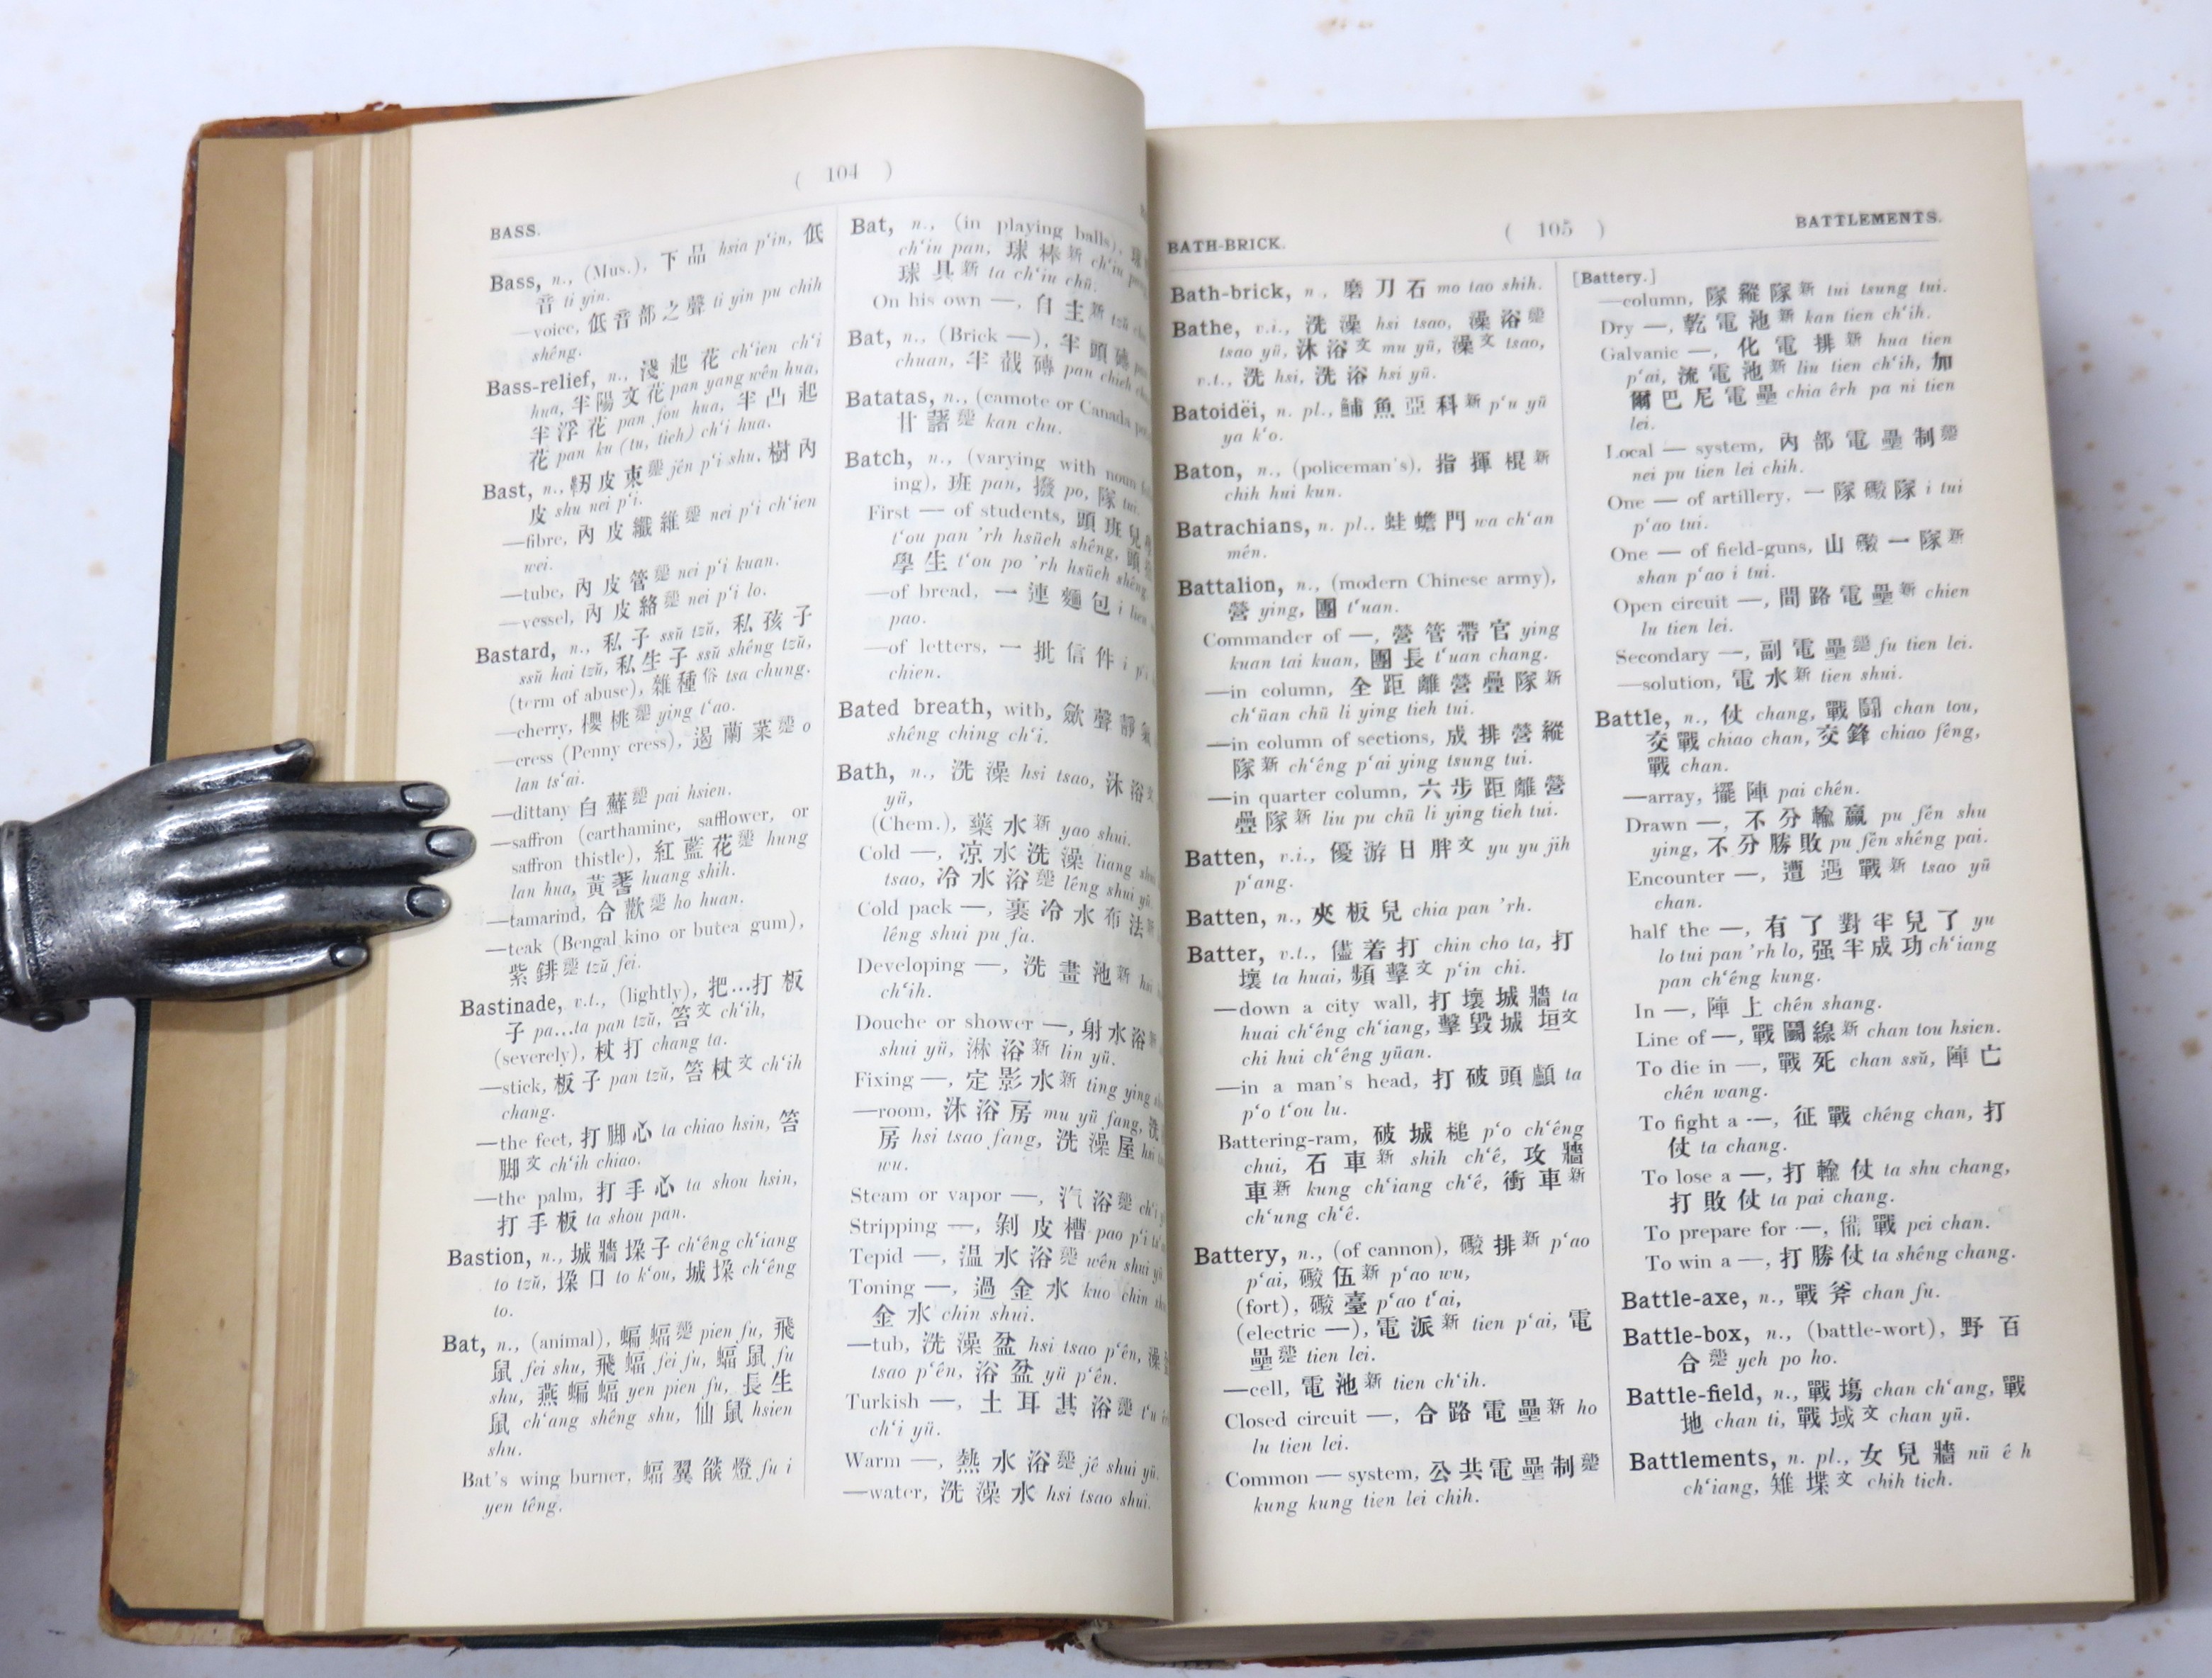 ( 104 )
BASS.
Bass, n., (Mus.), 下品 hsia p‘in, 低
音 ti yin.
—voice, 低音部之聲 ti yin pu chih
shêng.
Bass-relief, n., 淺起花 ch‘ien ch‘i
hua, 半陽文花 pan yang wên hua,
半浮花 pan fou hua, 半凸起
花 pan ku (tu, tieh) ch‘i hua.
Bast, n., 韌皮東部定 jên p‘i shu, 樹內
皮 shu nei p‘i.
—fibre, 內皮纖維部定 nei p‘i ch‘ien
wei.
—tube, 內皮管部定 nei p‘i kuan.
—vessel, 內皮絡部定 nei p‘i lo.
Bastard, n., 私子 ssŭ tzŭ, 私孩子
ssŭ hai tzŭ, 私生子 ssŭ shêng tzŭ,
(term of abuse), 雜種俗 tsa chung.
—cherry, 櫻桃部定 ying t‘ao.
—cress (Penny cress), 遏藺菜部定 o
lan ts‘ai.
—dittany 白蘚部定 pai hsien.
—saffron (carthamine, safflower, or
saffron thistle), 紅藍花部定 hung
lan hua, 黃蓍 huang shih.
—tamarind, 合歡部定 ho huan.
—teak (Bengal kino or butea gum),
紫鉚部定 tzŭ fei.
Bastinade, v.t., (lightly), 把…打板
子 pa…ta pan tzŭ, 笞文 ch‘ih,
(severely), 杖打 chang ta.
—stick, 板子 pan tzŭ, 笞杖文 ch‘ih
chang.
—the feet, 打脚心 ta chiao hsin, 笞
脚文 ch‘ih chiao.
—the palm, 打手心 ta shou hsin,
打手板 ta shou pan.
Bastion, n., 城牆垜子 ch‘êng ch‘iang
to tzŭ, 垜口 to k‘ou, 城垜 ch‘êng
to.
Bat, n., (animal), 蝙蝠部定 pien fu, 飛
鼠 fei shu, 飛蝠 fei fu, 蝠鼠 fu
shu, 燕蝙蝠 yen pien fu, 長生
鼠 ch‘ang shêng shu, 仙鼠 hsien
shu.
Bat's wing burner, 蝠翼燄燈 fu i
yen têng.
Bat, n., (in playing balls),
ch‘iu pan, 球棒新 ch‘iu
球具新 ta ch‘iu chü.
On his own —, 自主新 tzŭ
Bat, n., (Brick —), 半頭磚
chuan, 半截磚 pan chieh
Batatas, n., (camote or Canada
甘藷部定 kan chu.
Batch, n., (varying with noun
ing), 班 pan, 撥 po, 隊 tui.
First — of students, 頭班兒
t‘ou pan 'rh hsüeh shêng, 頭
學生 t‘ou po 'rh hsüeh shêng.
—of bread, 一連麵包 i lien
pao.
—of letters, 一批信件 i p‘i
chien.
Bated breath, with, 歛聲靜氣
shêng ching ch‘i.
Bath, n., 洗澡 hsi tsao, 沐浴文
yü,
(Chem.), 藥水新 yao shui.
Cold —, 凉水洗澡 liang
tsao, 冷水浴部定 lêng shui yü.
Cold pack —, 裹冷水布法
lêng shui pu fa.
Developing —, 洗畫池新
ch‘ih.
Douche or shower —, 射水浴
shui yü, 淋浴新 lin yü.
Fixing —, 定影水新 ting ying
—room, 沐浴房 mu yü fang, 洗
房 hsi tsao fang, 洗澡屋
wu.
Steam or vapor —, 汽浴部定 ch‘i
Stripping —, 剝皮槽 pao p‘i
Tepid —, 温水浴部定 wên shui yü.
Toning —, 過金水 kuo chin
金水 chin shui.
—tub, 洗澡盆 hsi tsao p‘ên, 澡
tsao p‘ên, 浴盆 yü p‘ên.
Turkish —, 土耳其浴部定 t‘u
ch‘i yü.
Warm —, 熱水浴部定 jê shui yü.
—water, 洗澡水 hsi tsao shui.
BATH-BRICK.
( 105 )
BATTLEMENTS.
Bath-brick, n., 磨刀石 mo tao shih.
Bathe, v.i., 洗澡 hsi tsao, 澡浴部定
tsao yü, 沐浴文 mu yü, 澡文 tsao,
v.t., 洗 hsi, 洗浴 hsi yü.
Batoidëi, n. pl., 鯆魚亞科新 p‘u yü
ya k‘o.
Baton, n., (policeman's), 指揮棍新
chih hui kun.
Batrachians, n. pl., 蛙蟾門 wa ch‘an
mên.
Battalion, n., (modern Chinese army),
營 ying, 團 t‘uan.
Commander of —, 營管帶官 ying
kuan tai kuan, 團長 t‘uan chang.
—in column, 全距離營疊隊新
ch‘üan chü li ying tieh tui.
—in column of sections, 成排營縱
隊新 ch‘êng p‘ai ying tsung tui.
—in quarter column, 六步距離營
疊隊新 liu pu chü li ying tieh tui.
Batten, v.i., 優游日胖文 yu yu jih
p‘ang.
Batten, n., 夾板兒 chia pan 'rh.
Batter, v.t., 儘着打 chin cho ta, 打
壞 ta huai, 頻擊文 p‘in chi.
—down a city wall, 打壞城牆 ta
huai ch‘êng ch‘iang, 擊毀城垣文
chi hui ch‘êng yüan.
—in a man's head, 打破頭顱 ta
p‘o t‘ou lu.
Battering-ram, 破城槌 p‘o ch‘êng
chui, 石車新 shih ch‘ê, 攻牆
車新 kung ch‘iang ch‘ê, 衝車新
ch‘ung ch‘ê.
Battery, n., (of cannon), 礮排新 p‘ao
p‘ai, 礮伍新 p‘ao wu,
(fort), 礮臺 p‘ao t‘ai,
(electric —), 電派新 tien p‘ai, 電
壘部定 tien lei.
—cell, 電池新 tien ch‘ih.
Closed circuit —, 合路電壘新 ho
lu tien lei.
Common — system, 公共電壘制部定
kung kung tien lei chih.
[Battery.]
—column, 隊縱隊新 tui tsung tui.
Dry —, 乾電池新 kan tien ch‘ih.
Galvanic —, 化電排新 hua tien
p‘ai, 流電池新 liu tien ch‘ih, 加
爾巴尼電壘 chia êrh pa ni tien
lei.
Local — system, 內部電壘制部定
nei pu tien lei chih.
One — of artillery, 一隊礮隊 i tui
p‘ao tui.
One — of field-guns, 山礮一隊新
shan p‘ao i tui.
Open circuit —, 間路電壘新 chien
lu tien lei.
Secondary —, 副電壘部定 fu tien lei.
—solution, 電水新 tien shui.
Battle, n., 仗 chang, 戰鬪 chan tou,
交戰 chiao chan, 交鋒 chiao fêng,
戰 chan.
—array, 擺陣 pai chên.
Drawn —, 不分輸贏 pu fên shu
ying, 不分勝敗 pu fên shêng pai.
Encounter —, 遭遇戰新 tsao yü
chan.
half the —, 有了對半兒了 yu
lo tui pan 'rh lo, 强半成功 ch‘iang
pan ch‘êng kung.
In —, 陣上 chên shang.
Line of —, 戰鬪線新 chan tou hsien.
To die in —, 戰死 chan ssŭ, 陣亡
chên wang.
To fight a —, 征戰 chêng chan, 打
仗 ta chang.
To lose a —, 打輸仗 ta shu chang,
打敗仗 ta pai chang.
To prepare for —, 備戰 pei chan.
To win a —, 打勝仗 ta shêng chang.
Battle-axe, n., 戰斧 chan fu.
Battle-box, n., (battle-wort), 野百
合部定 yeh po ho.
Battle-field, n., 戰塲 chan ch‘ang, 戰
地 chan ti, 戰域文 chan yü.
Battlements, n. pl., 女兒牆 nü ê h
ch‘iang, 雉堞文 chih tieh.